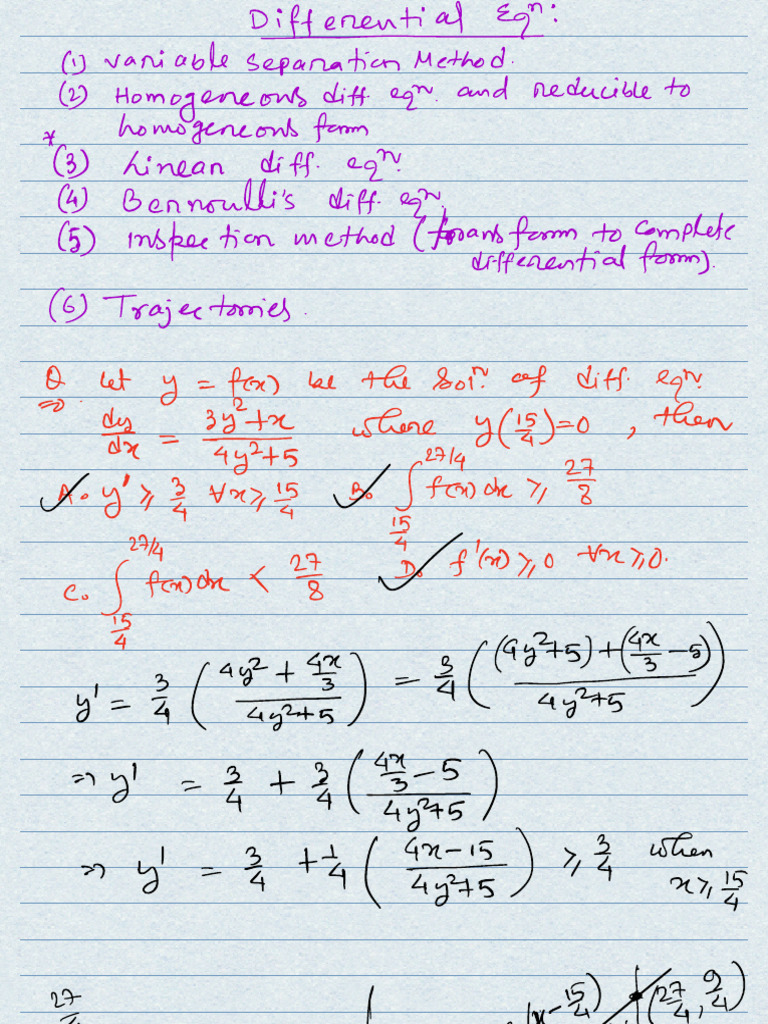 Differential Eqⁿ:
(1) variable separation Method.
(2) Homogeneous diff. eqⁿ. and reducible to
homogeneous form
* (3) Linear diff. eqⁿ.
(4) Bernoulli's diff. eqⁿ.
(5) inspection method (transform to complete
differential form).
(6) Trajectories.
Q ⇒ Let y = f(x) be the Solⁿ. of diff. eqⁿ.
dy/dx = (3y²+x)/(4y²+5) where y(15/4)=0, then
A. y' ≥ 3/4 ∀x ≥ 15/4 B. ∫_{15/4}^{27/4} f(x)dx ≥ 27/8
C. ∫_{15/4}^{27/4} f(x)dx < 27/8 D. f'(x) ≥ 0 ∀x ≥ 0.
y' = 3/4 ((4y² + 4x/3)/(4y²+5)) = 3/4 (((4y²+5)+(4x/3 −5))/(4y²+5))
⇒ y' = 3/4 + 3/4 ((4x/3 − 5)/(4y²+5))
⇒ y' = 3/4 + 1/4 ((4x−15)/(4y²+5)) ≥ 3/4 when x ≥ 15/4
27 (x − 15/4) (27/4, 9/4)